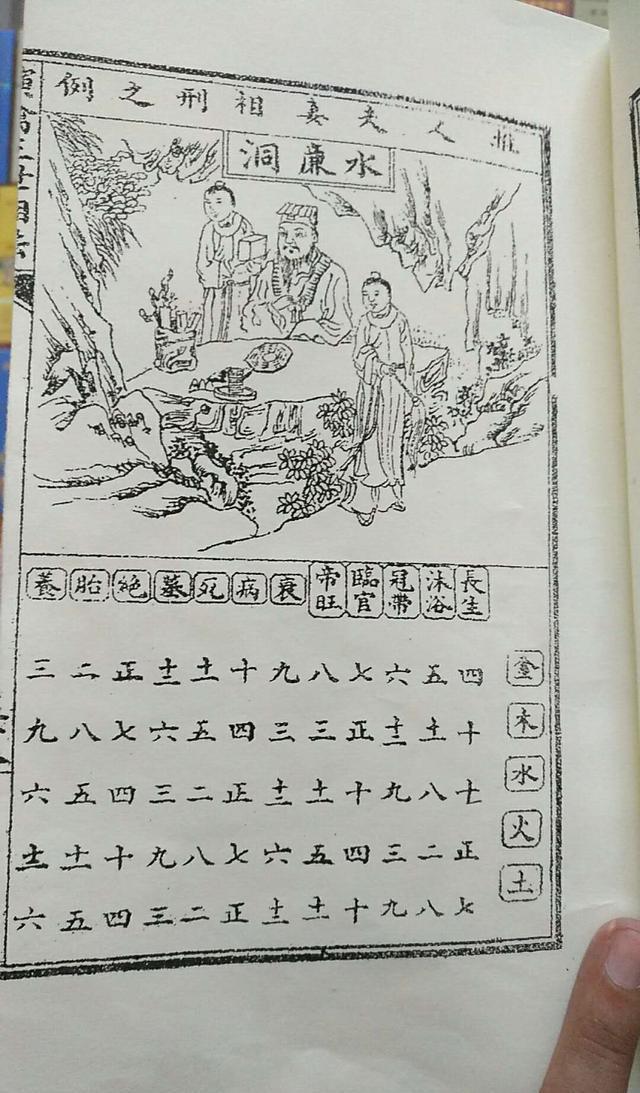 推人夫妻相刑之例
水廉洞
演禽三世相法
長生 沐浴 冠帶 臨官 帝旺 衰 病 死 墓 絶 胎 養
金 四 五 六 七 八 九 十 十一 十二 正 二 三
木 十 十一 十二 正 三 三 四 五 六 七 八 九
水 七 八 九 十 十一 十二 正 二 三 四 五 六
火 正 二 三 四 五 六 七 八 九 十 十一 十二
土 七 八 九 十 十一 十二 正 二 三 四 五 六